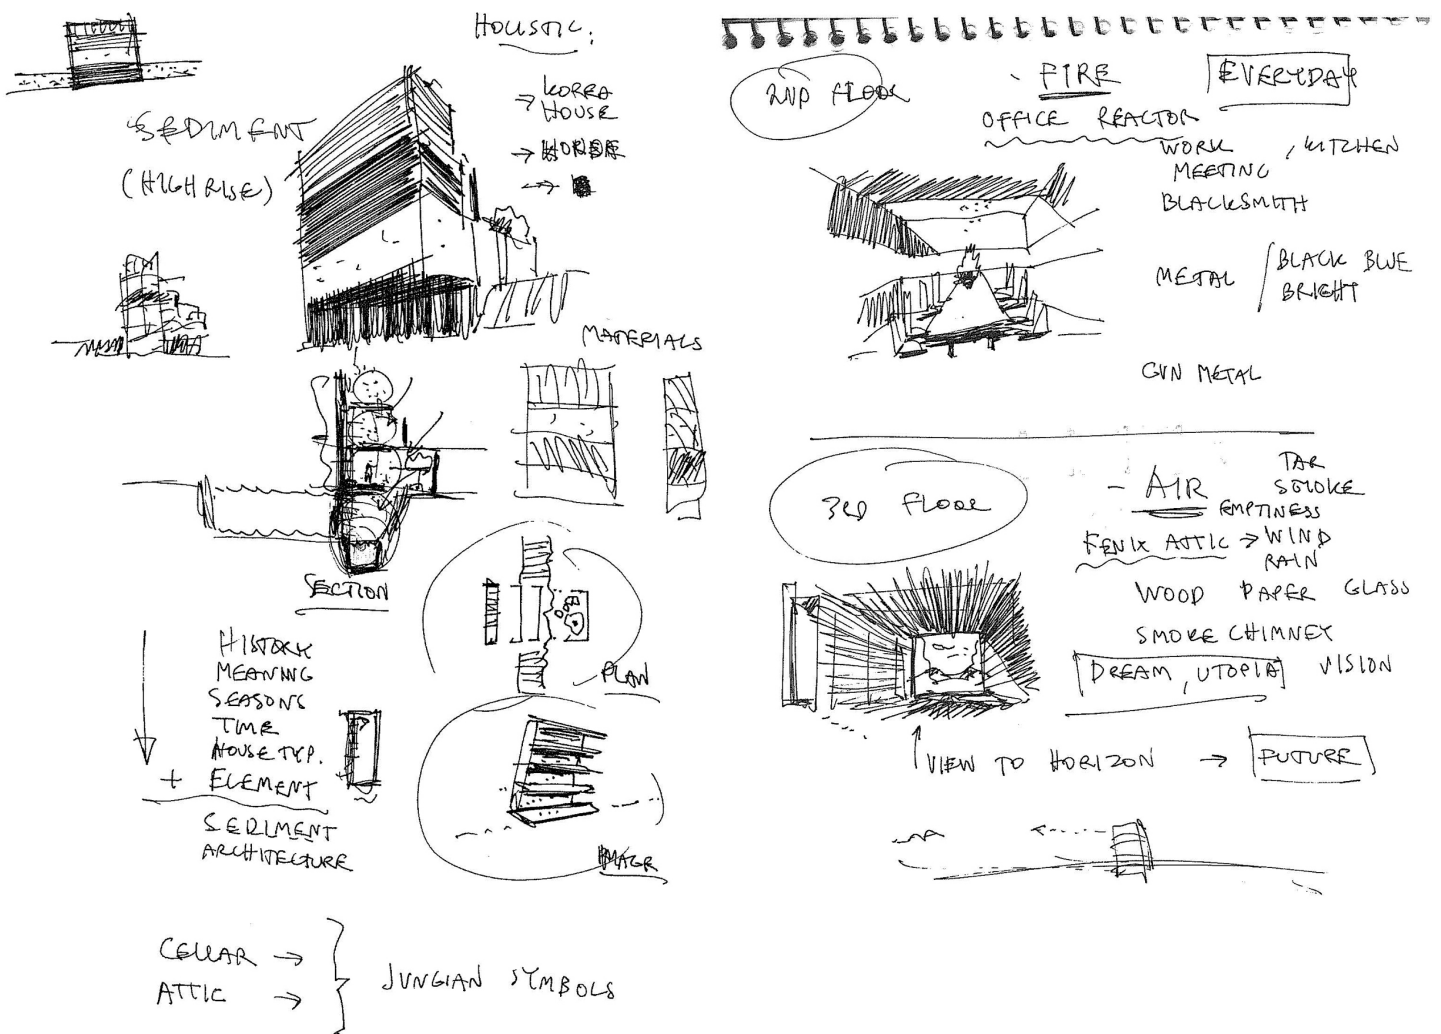 HOLISTIC.
→ KOREA
HOUSE
SEDIMENT
(HIGH RISE)
MATERIALS
SECTION
HISTORY
MEANING
SEASONS
TIME
HOUSE TYP.
+ ELEMENT
SEDIMENT
ARCHITECTURE
PLAN
IMAGE
CELLAR →
ATTIC →
JUNGIAN SYMBOLS
2ND FLOOR
- FIRE
EVERYDAY
OFFICE REACTOR
WORK , KITCHEN
MEETING
BLACKSMITH
METAL / BLACK BLUE
BRIGHT
GUN METAL
3RD FLOOR
- AIR
TAR
SMOKE
EMPTINESS
FENIX ATTIC → WIND
RAIN
WOOD PAPER GLASS
SMOKE CHIMNEY
DREAM, UTOPIA VISION
VIEW TO HORIZON → FUTURE